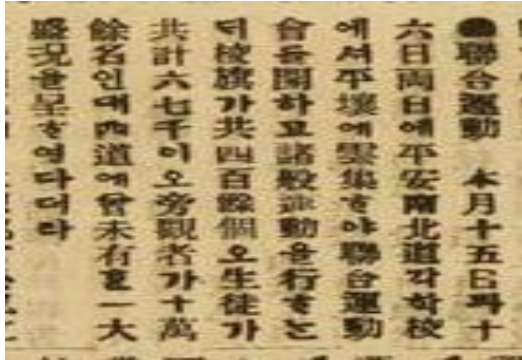 ●聯合運動 本月十五日과十
六日兩日에平安南北道각학校
에셔平壤에雲集ᄒᆞ야聯合運動
會를開하고諸般運動을行ᄒᆞᄂᆞᆫ
ᄃᆡ校旗가共四百餘個오生徒가
共計六七千이오旁觀者가十萬
餘名인대西道에曾未有ᄒᆞᆫ一大
盛况을呈ᄒᆞ엿다더라